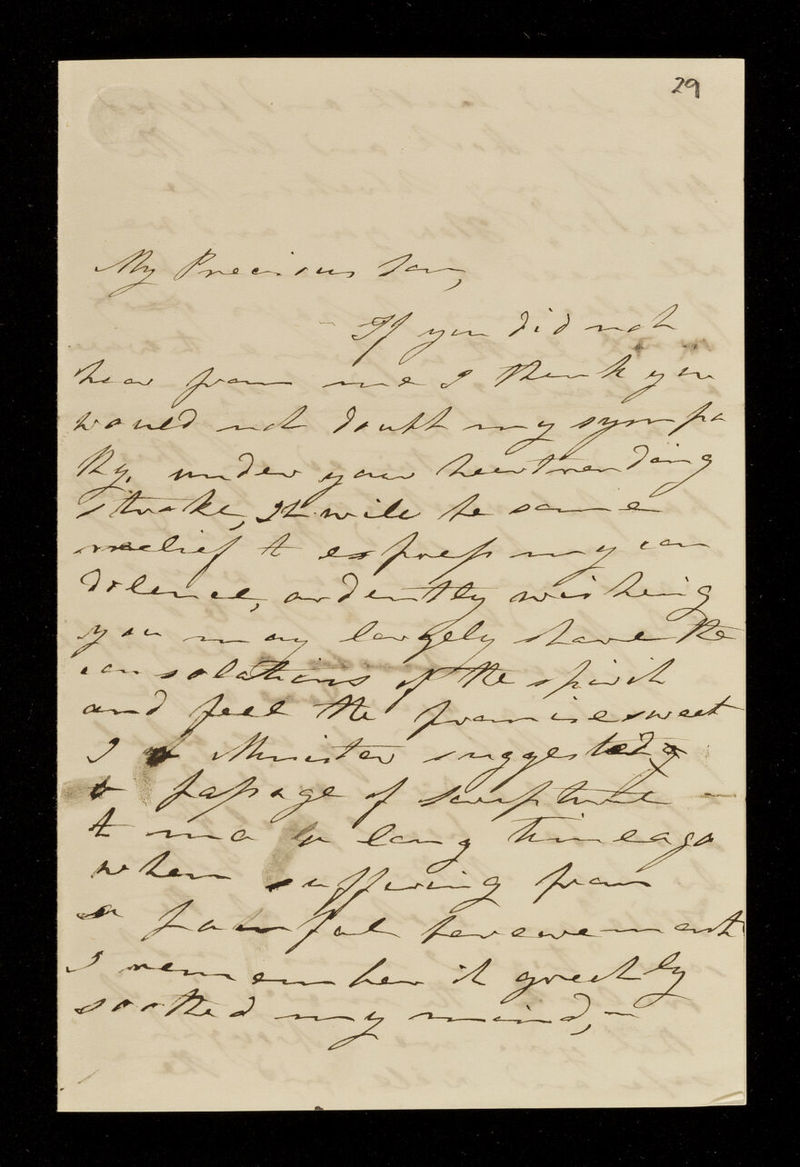 29
My Precious Son,
If you did not
hear from me I think you
would not doubt my sympa
thy, under your heartrending
stroke, It will be some
relief to express my con
dolence, ardently wishing
you may largely share the
consolations of the spirit
and feel the promise sweet
I Minister suggested
passage of scripture
to ma a long time ago
when suffering from
a painful bereavement
I remember it greatly
soothed my mind,